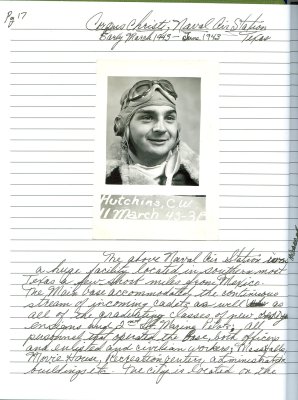 Pg 17
Corpus Christi, Naval Air Station
Early March 1943 - June 1943 Texas
Hutchins, C.W.
11 March 43-3F
The above Naval Air Station
a huge facility located in southern most
Texas a few short miles from Mexico.
The Main base accommodated the continuous
stream of incoming cadets as well as
all of the graduating classes of new
ensigns and 2nd Lt. Marine Pilots; all
personnel that operated the base, both officers
and enlisted and civilian workers; Mess halls
Movie House, Recreation centers, administration
buildings etc. The city is located on the